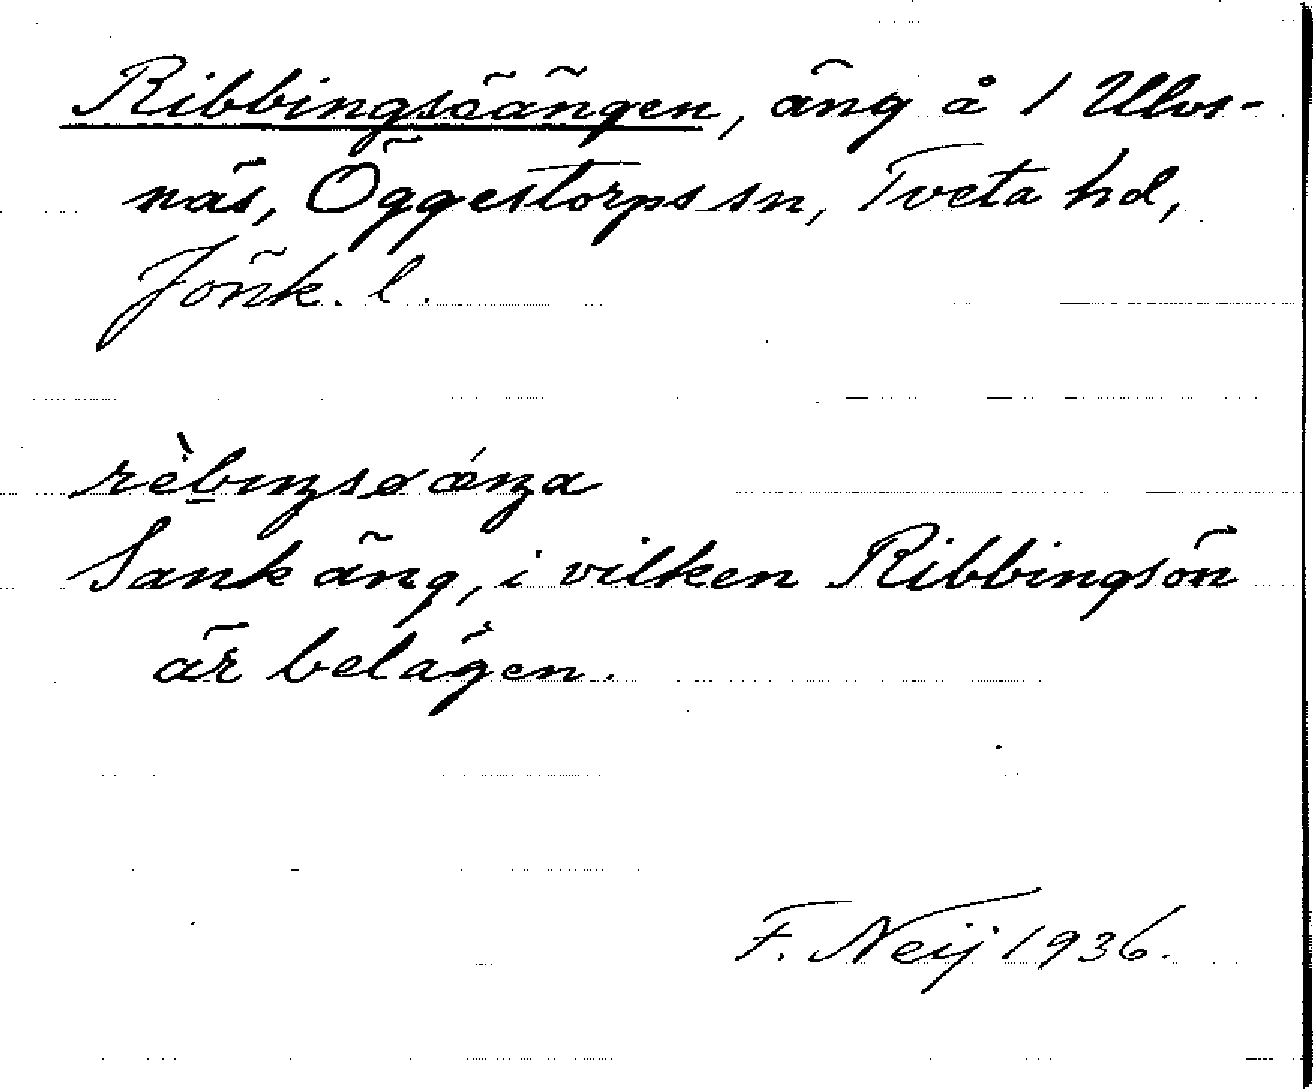 Ribbingsöängen, äng å 1 Ulvs-
näs, Öggestorps sn, Tveta hd,
Jönk. l.
rèbiŋsøǽŋa
Sank äng, i vilken Ribbingsön
är belägen.
F. Neij 1936.